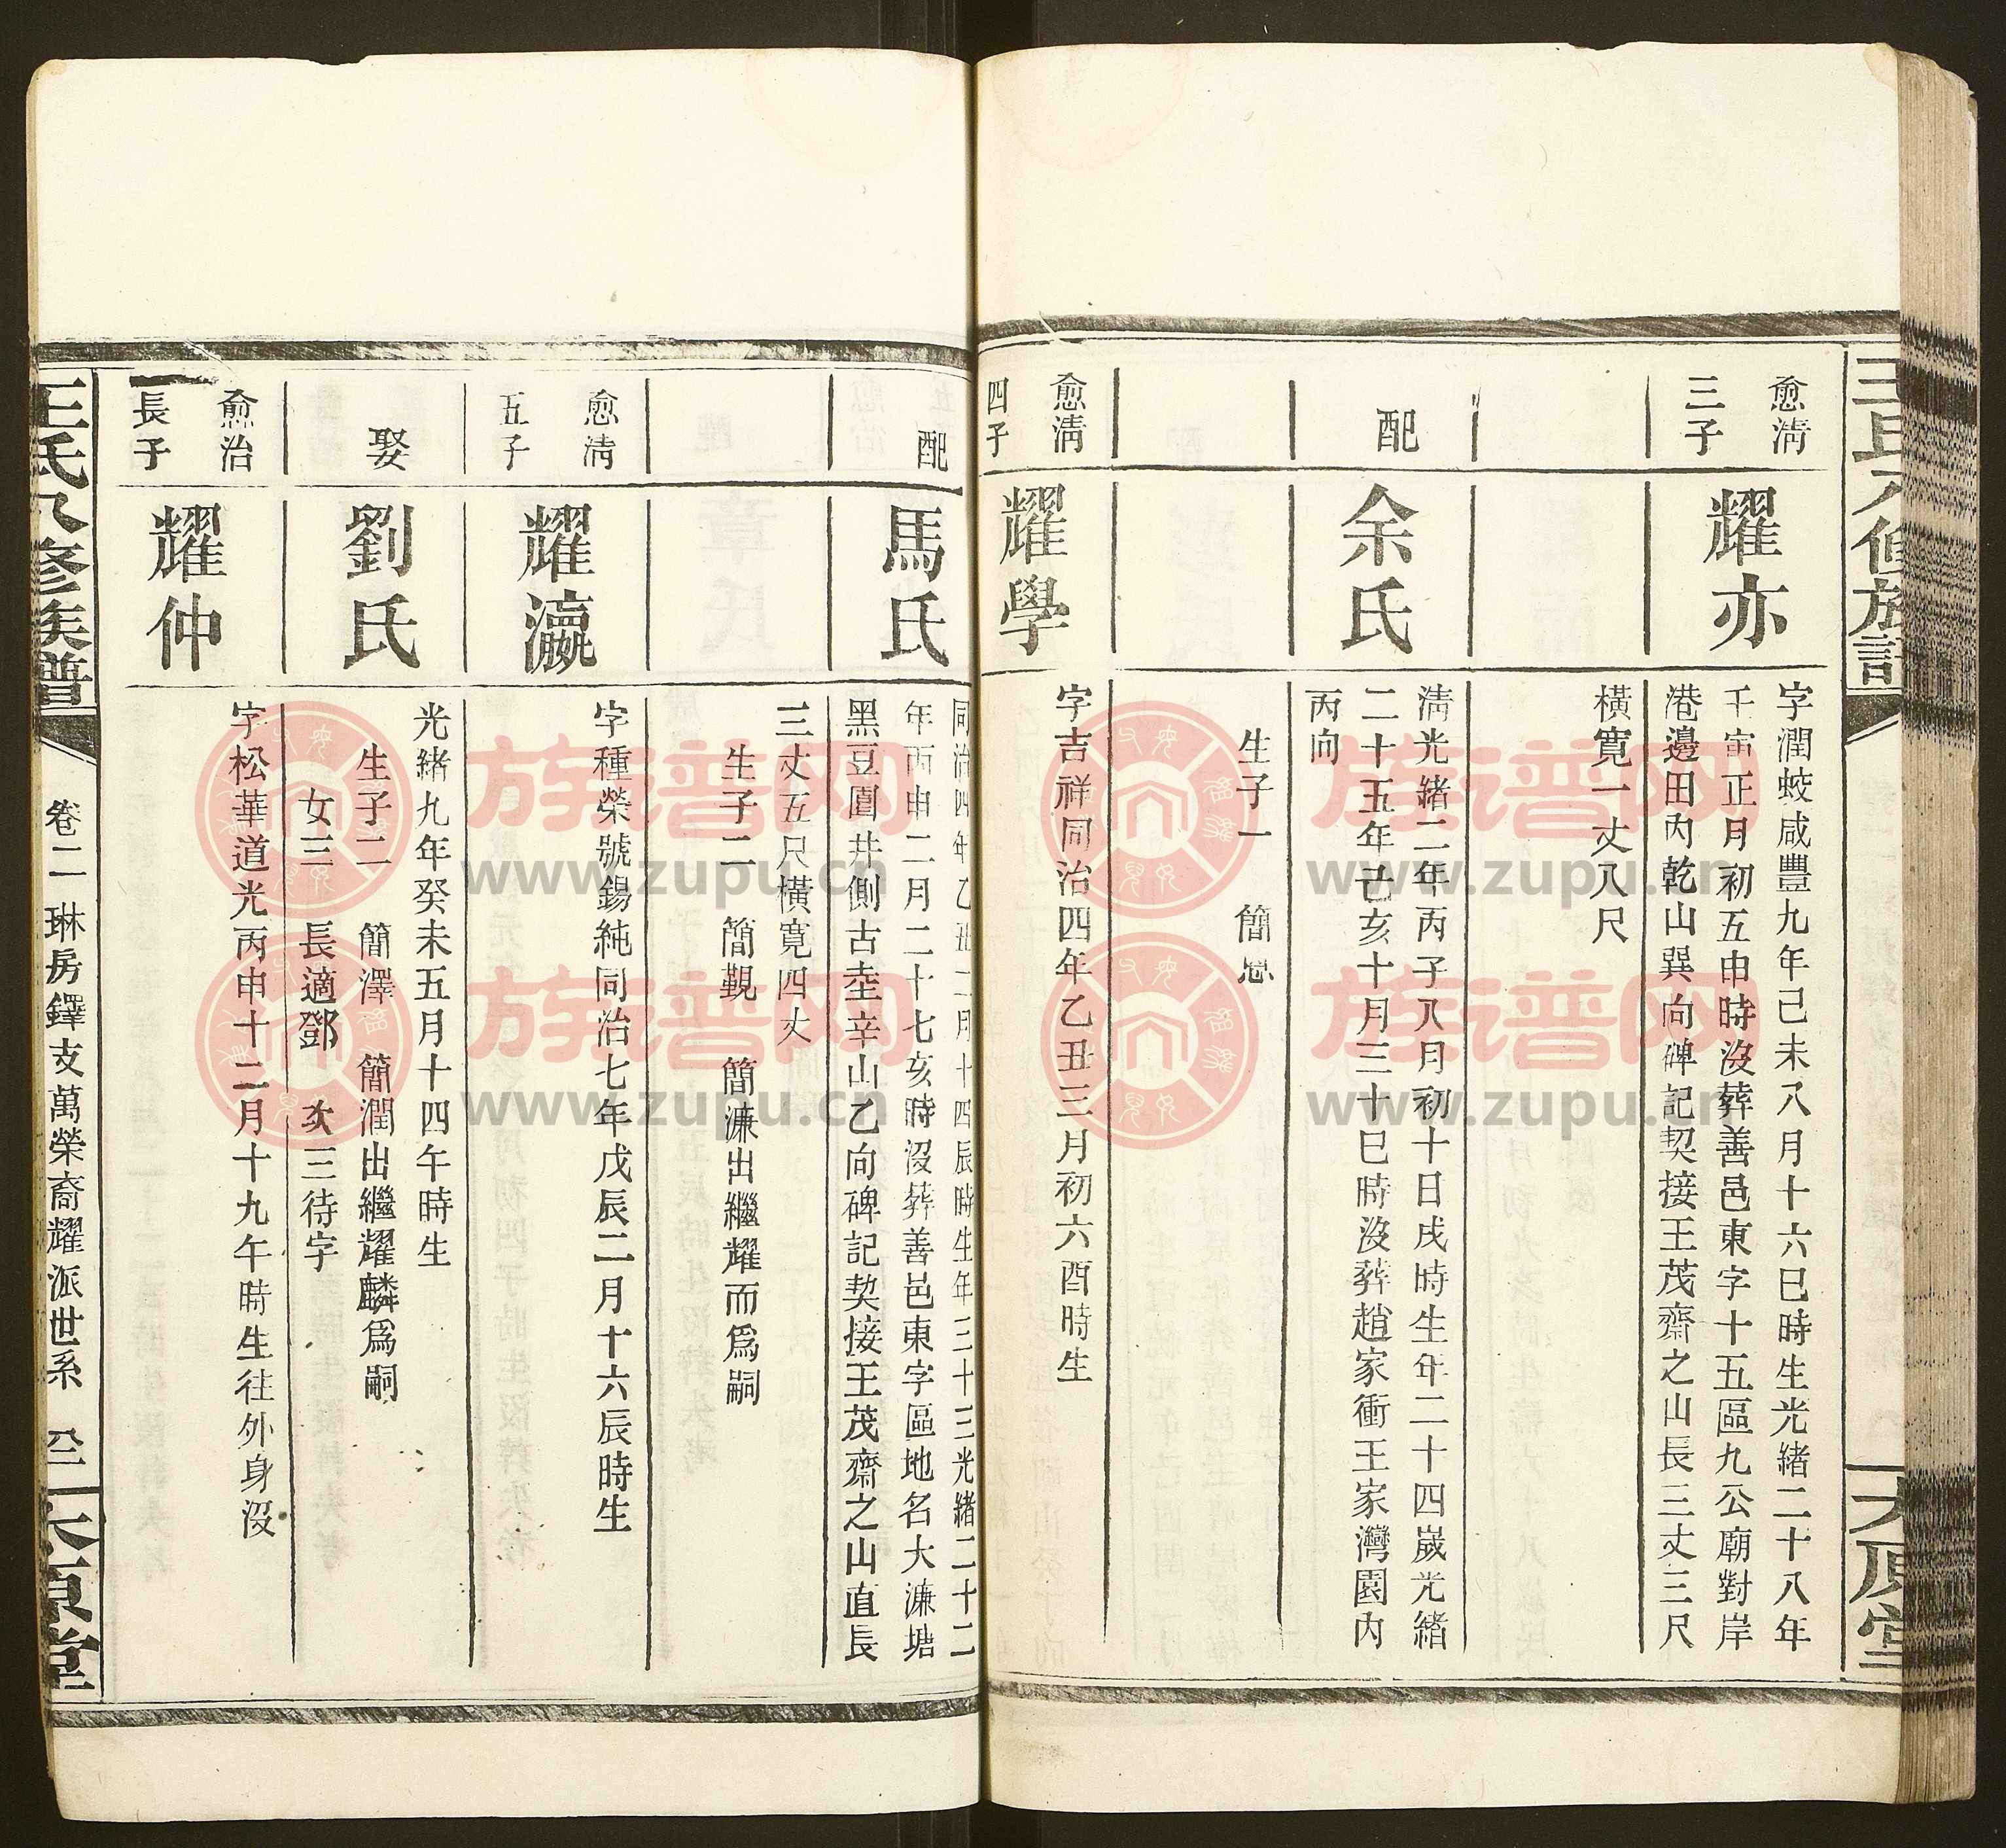 愈淸
三子
耀亦
字潤蛟咸豐九年己未八月十六巳時生光緒二十八年
壬寅正月初五申時沒葬善邑東字十五區九公廟對岸
港邊田內乾山巽向碑記契接王茂齋之山長三丈三尺
橫寬一丈八尺
配
余氏
淸光緒二年丙子八月初十日戌時生年二十四歲光緒
二十五年己亥十月三十巳時沒葬趙家衝王家灣園內
丙向
生子一 簡
愈淸
四子
耀學
字吉祥同治四年乙丑三月初六酉時生
配
馬氏
同治四年乙丑二月十四辰時生年三十三光緒二十二
年丙申二月二十七亥時沒葬善邑東字區地名大濂塘
黑豆圓井側古坴辛山乙向碑記契接王茂齋之山直長
三丈五尺橫寬四丈
生子二 簡觀 簡濂出繼耀而爲嗣
愈淸
五子
耀瀛
字種榮號錫純同治七年戊辰二月十六辰時生
娶
劉氏
光緒九年癸未五月十四午時生
生子二 簡澤 簡潤出繼耀麟爲嗣
女三 長適鄧 次三待字
愈治
長子
耀仲
字松華道光丙申十二月十九午時生往外身沒
王氏八修族譜
卷二 琳房鐸支萬榮裔耀派世系
太原堂
王氏八修族譜
太原堂
族谱网
www.zupu.cn
族谱网
www.zupu.cn
族谱网
www.zupu.cn
族谱网
www.zupu.cn